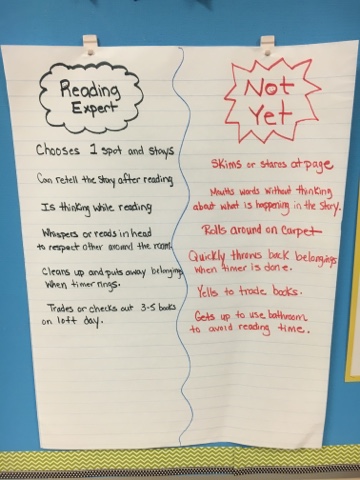 Reading
Expert
Chooses 1 spot and stays
Can retell the story after reading
Is thinking while reading
Whispers or reads in head
to respect other around the room.
Cleans up and puts away belongings
when timer rings.
Trades or checks out 3-5 books
on loft day.
Not
Yet
Skims or stares at page
Mouths words without thinking
about what is happening in the story.
Rolls around on carpet
Quickly throws back belongings
when timer is done.
Yells to trade books.
Gets up to use bathroom
to avoid reading time.